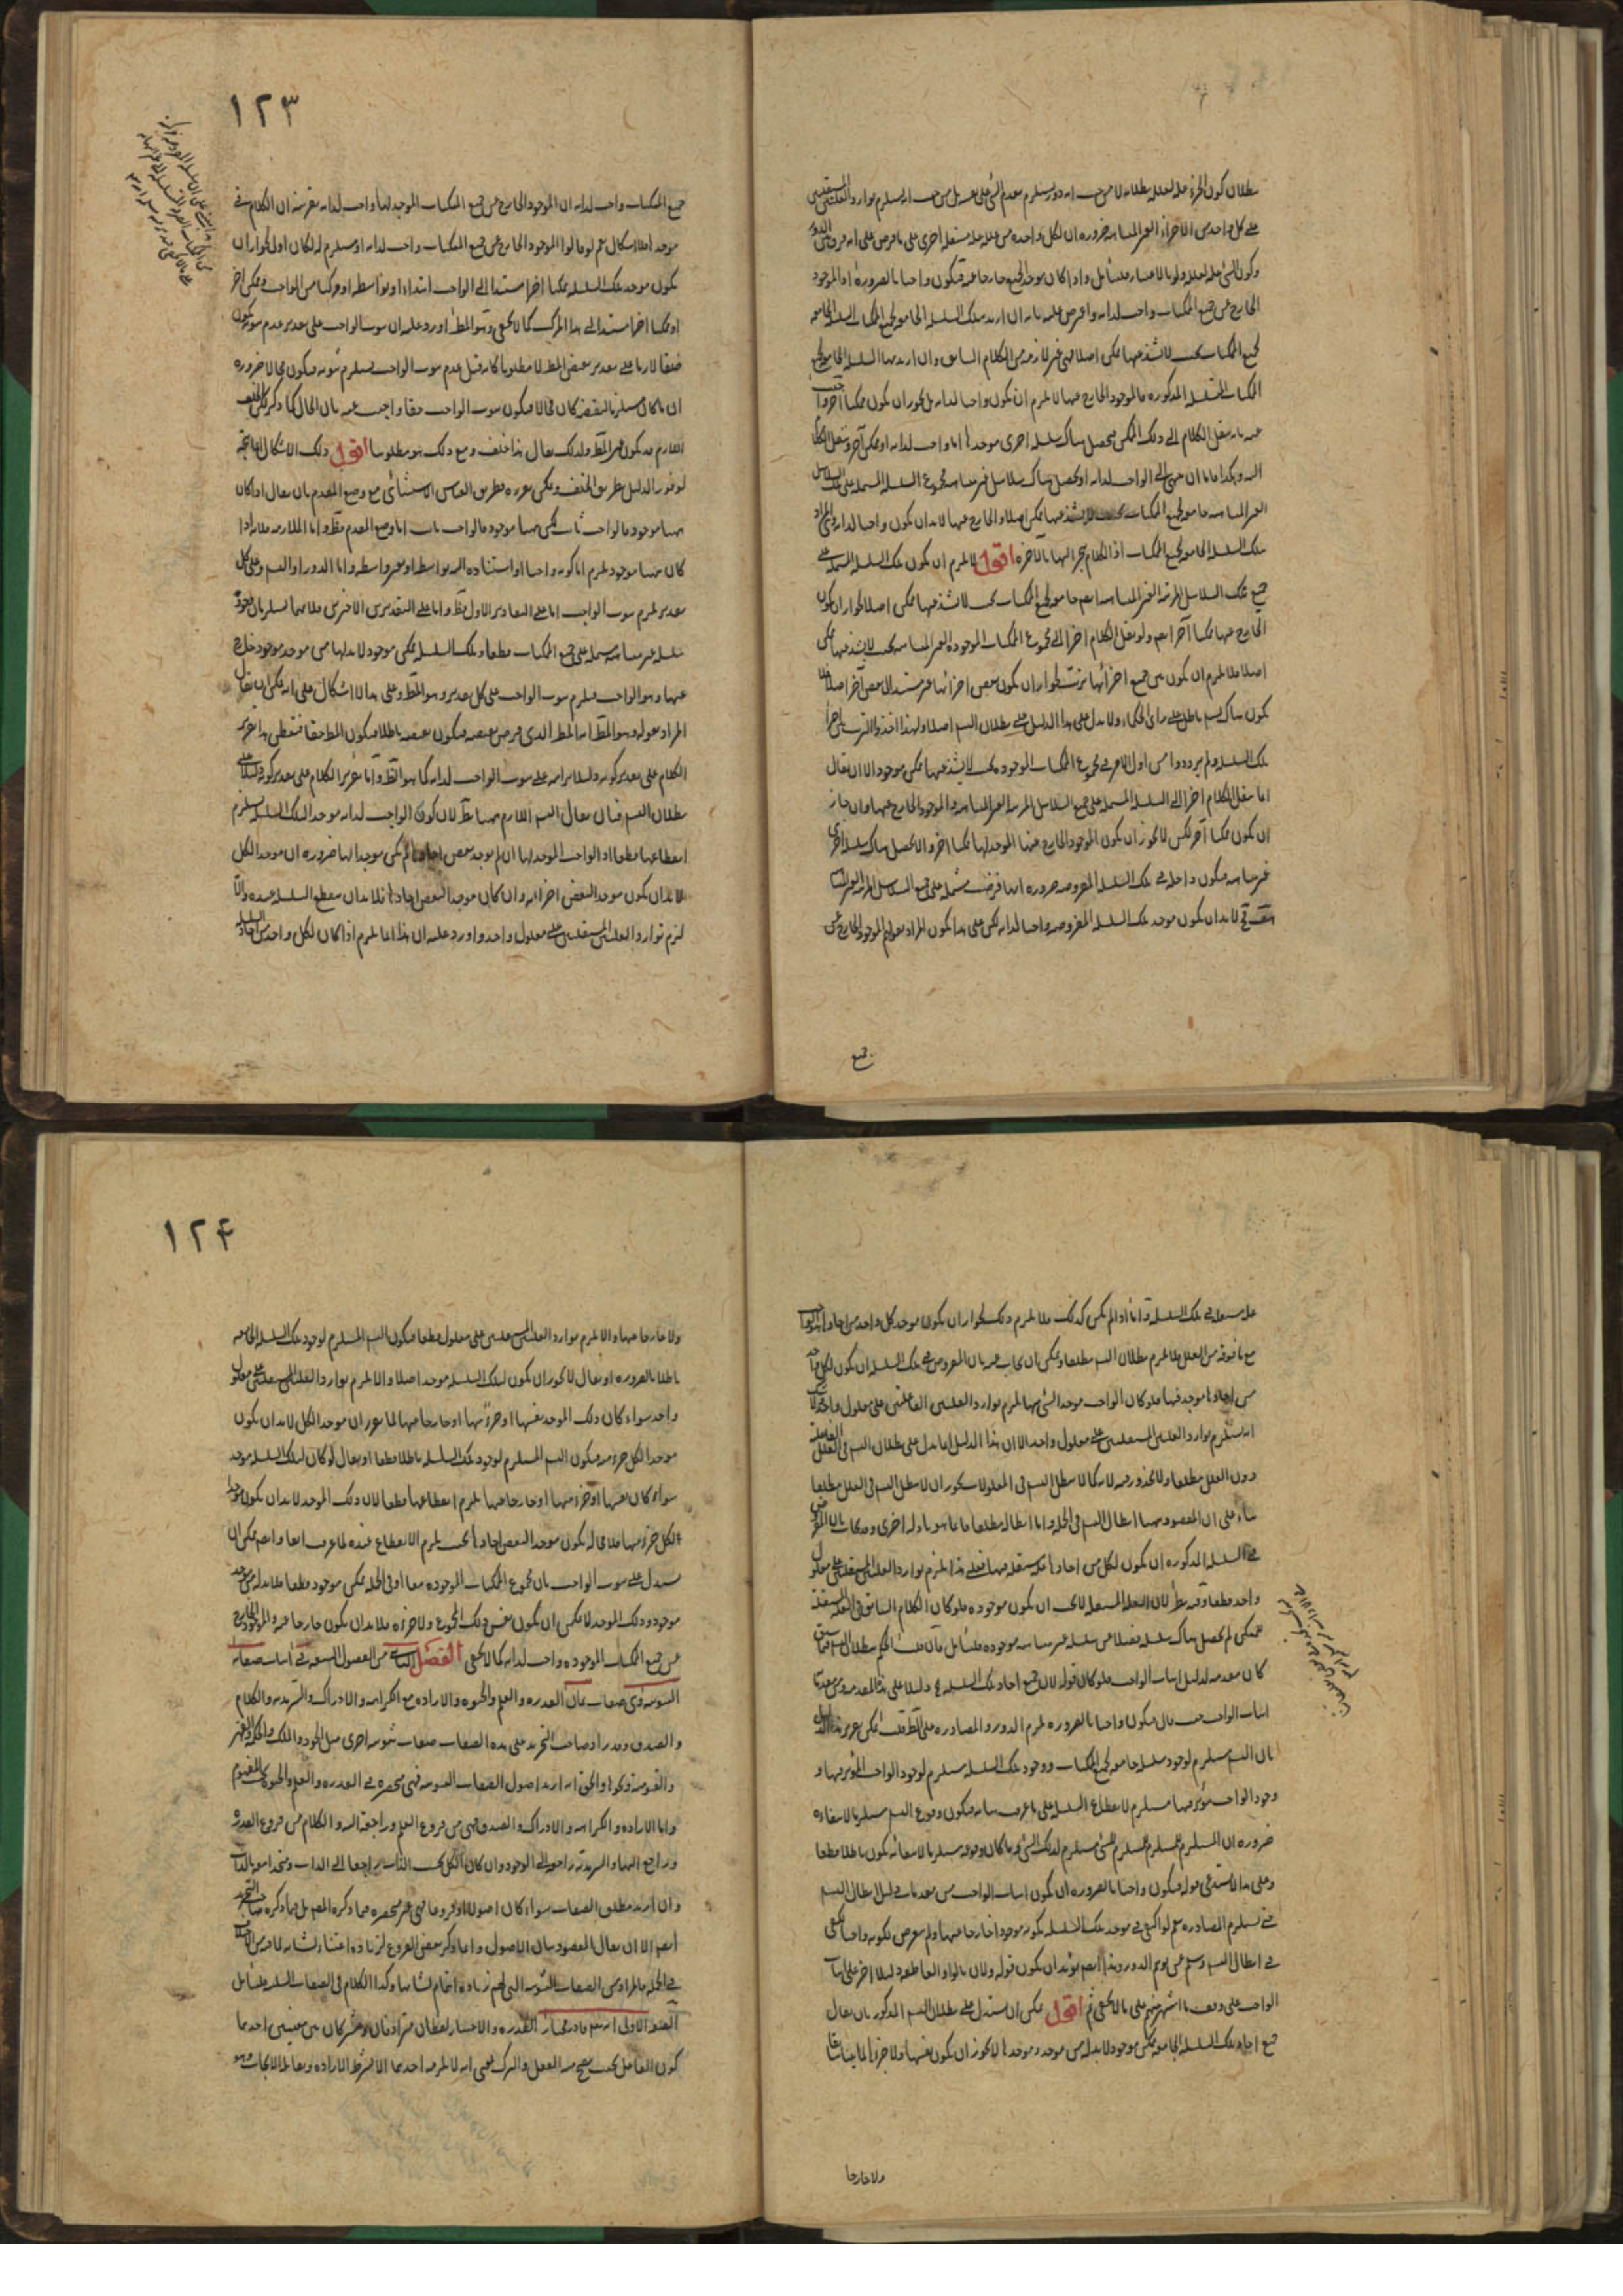 بطلان كون الجزء علة لعلله بطلانه لا من حيث انه دور يستلزم تقدم الشئ على نفسه بل من حيث انه يستلزم توارد العلتين المستقلتين
على كل واحد من الاجزاء الغير المتناهية ضرورة ان لكل واحدة من علله علة مستقلة اخرى على ما فرض
وكون الشئ علة لعلله ولو بالاعتبار فليتأمل واذا كان موجد الجميع خارجا عنه فيكون واجبا بالضرورة اذ الموجود
الخارج عن جميع الممكنات واجب لذاته واعترض عليه بانه ان اريد بتلك السلسلة الجامعة لجميع الممكنات السلسلة الجامعة
لجميع الممكنات بحيث لا يشذ عنها ممكن اصلا فهي غير لازمة من الكلام السابق وان اريد بها السلسلة الجامعة لجميع
الممكنات المتسلسلة المذكورة فالموجود الخارج عنها لا يلزم ان يكون واجبا لذاته بل يجوز ان يكون ممكنا آخر واجيب
عنه بانه ينقل الكلام الى ذلك الممكن فيحصل هناك سلسلة اخرى موجدها اما واجب لذاته او ممكن آخر وننقل الكلام
اليه وهكذا فاما ان ينتهي الى الواجب لذاته او يحصل هناك سلاسل غير متناهية فمجموع السلسلة المشتملة على تلك السلاسل
الغير المتناهية جامعة لجميع الممكنات بحيث لا يشذ عنها ممكن اصلا والخارج عنها لا بد ان يكون واجبا لذاته وهي المراد
بتلك السلسلة الجامعة لجميع الممكنات اذ الكلام ينجر اليها بالآخرة اقول لا يلزم ان يكون تلك السلسلة المشتملة على
جميع تلك السلاسل المرتبة الغير المتناهية ايضا جامعة لجميع الممكنات بحيث لا يشذ عنها ممكن اصلا لجواز ان يكون
الخارج عنها ممكنا آخر ايضا ولو نقل الكلام اخرا الى مجموع الممكنات الموجودة الغير المتناهية بحيث لا يشذ عنها ممكن
اصلا فلا يلزم ان يكون بين جميع اجزائها ترتب لجواز ان يكون بعض اجزائها غير مستند الى بعض آخر اصلا فلا
يكون هناك تسلسل باطل على رأى الحكماء ولا يدل على هذا الدليل على بطلان التس اصلا ولهذا اخذوا الترتب بين اجزاء
تلك السلسلة ولم يرددوا من اول الامر في مجموع الممكنات الموجودة بحيث لا يشذ عنها ممكن موجود الا ان يقال
انما ينقل الكلام اخرا الى السلسلة المشتملة على جميع السلاسل المرتبة الغير المتناهية والموجود الخارج عنها وان جاز
ان يكون ممكنا آخر لكن لا يجوز ان يكون الموجود الخارج عنها الموجد لها ممكنا آخر والا يحصل هناك سلسلة اخرى
غير متناهية فيكون داخلة في تلك السلسلة المفروضة ضرورة انها فرضت مشتملة على جميع السلاسل المرتبة الغير المتناهية
هف فح لا بد ان يكون موجد تلك السلسلة المفروضة واجبا لذاته لكن على هذا يكون المراد بقولهم الموجود الخارج عن
جميع
١٢٣
جميع الممكنات واجب لذاته ان الموجود الخارج عن جميع الممكنات الموجد لها واجب لذاته بقرينة ان الكلام في
موجدها فلا اشكال نعم لو قالوا الموجود الخارج عن جميع الممكنات واجب لذاته او مستلزم له لكان اولى لجواز ان
يكون موجد تلك السلسلة ممكنا آخر مستندا الى الواجب ابتداء او بواسطة او مركبا من الواجب وممكن آخر
او ممكنا آخر مستندا الى هذا المركب كما لا يخفى وهو المط اورد عليه ان ثبوت الواجب على تقدير عدم ثبوته يكون
لان ما كان مستلزما لنقيضه كان محالا فيكون ثبوت الواجب حقا واجيب عنه بان المحال كما ذكر لكن الخلف
اللازم قد يكون عين المط ولذلك يقال هذا خلف ومع ذلك هو مطلوبنا اقول ذلك الاشكال انما يتجه
لو قرر الدليل بطريق الخلف ويمكن تقريره بطريق القياس الاستثنائي مع وضع المقدم بان يقال اذا كان
ههنا موجود فالواجب ثابت لكن ههنا موجود فالواجب ثابت اما وضع المقدم فظ واما الملازمة فلانه اذا
كان ههنا موجود يلزم اما كونه واجبا او استناده اليه بواسطة او بغير واسطة واما الدور او التس وعلى كل
تقدير يلزم ثبوت الواجب اما على التقادير الاول فظ واما على التقديرين الاخيرين فلانهما يستلزمان وجود
سلسلة غير متناهية مشتملة على جميع الممكنات قطعا وتلك السلسلة ممكن موجود لا بد لها من موجد موجود خارج
عنها وهو الواجب فيلزم ثبوت الواجب على كل تقدير وهو المط وعلى هذا لا اشكال على انه يمكن ان يقال
المراد بقوله وهو المط انه المط الذي فرض نقيضه فيكون نقيضه باطلا فيكون المط حقا فتفطن هذا تقرير
الكلام على تقدير كونه دليلا برأسه على ثبوت الواجب لذاته كما هو الظ واما تقرير الكلام على تقدير كونه دليلا على
بطلان التس فبان يقال التس اللازم ههنا بط لان كون الواجب لذاته موجدا لتلك السلسلة يستلزم
انقطاعها قطعا اذ الواجب الموجد لها ان لم يوجد بعض احادها لم يكن موجدا لها ضرورة ان موجد الكل
لا بد ان يكون موجدا لبعض اجزائه وان كان موجدا لبعض احادها فلا بد ان ينقطع السلسلة عنده والا
لزم توارد العلتين المستقلتين على معلول واحد واورد عليه ان هذا انما يلزم اذا كان لكل واحد من احاد السلسلة
علة مستقلة في تلك السلسلة واما اذا لم يكن كذلك فلا يلزم ذلك لجواز ان يكون موجد كل واحد من احادها الواجب
مع ما فوقه من العلل فلا يلزم بطلان التس مطلقا ويمكن ان يجاب عنه بان المفروض في تلك السلسلة ان يكون لكل واحد
من احادها موجد فيها فلو كان الواجب موجدا لشئ منها لزم توارد العلتين الفاعلتين على معلول واحد لا
انه يستلزم توارد العلتين المستقلتين على معلول واحد الا ان هذا الدليل انما يدل على بطلان التس في العلل الفاعلة
دون العلل مطلقا ولا محذور فيه لانه كما لا يبطل التس في المعلولات يجوز ان لا يبطل التس في العلل مطلقا
بناء على ان المقصود ههنا ابطال التس في الجملة واما ابطاله مطلقا فانما هو بادلة اخرى وقد يجاب بان المفروض
في السلسلة المذكورة ان يكون لكل من احادها علة مستقلة فيها فعلى هذا يلزم توارد العلتين المستقلتين على معلول
واحد قطعا وفيه نظر لان العلة المستقلة لا يجب ان يكون موجودة فلو كان الكلام السابق في العلة المستقلة
للممكن لم يحصل هناك سلسلة فضلا عن سلسلة غير متناهية موجودة فليتأمل فان قلت الحكم ببطلان التس فيما سبق
كان مقدمة لدليل اثبات الواجب فلو كان قوله لان جميع احاد تلك السلسلة الخ دليلا على هذا المقدمة ومن مقدماته
اثبات الواجب حيث قال فيكون واجبا بالضرورة لزم الدور والمصادرة على المط قلت يمكن تقرير هذا الدليل
بان التس مستلزم لوجود سلسلة جامعة لجميع الممكنات ووجود تلك السلسلة مستلزم لوجود الواجب المؤثر فيها و
وجود الواجب مؤثرا فيها مستلزم لانقطاع السلسلة على ما عرفت بيانه فيكون وقوع التس مستلزما لانتفائه
ضرورة ان المستلزم للمستلزم للشئ مستلزم لذلك الشئ وما كان وقوعه مستلزما لانتفائه يكون باطلا قطعا
وعلى هذا لا يستدعي قوله فيكون واجبا بالضرورة ان يكون اثبات الواجب من مقدمات دليل ابطال التس
حتى يستلزم المصادرة نعم لو اكتفى في موجد تلك السلسلة بكونه موجودا خارجا عنها ولم يتعرض لكونه واجبا لكفى
في ابطال التس وسلم عن توهم الدور وهذا ايضا يؤيد ان يكون قوله ولان بالواو العاطفة دليلا آخر على اثبات
الواجب على وفق ما اشتهر بينهم على ما لا يخفى ثم اقول يمكن ان يستدل على بطلان التس المذكور بان يقال
جميع احاد تلك السلسلة الجامعة ممكن موجود لا بد له من موجد وموجدها لا يجوز ان يكون نفسها ولا جزءها لما بينا سابقا
ولا خارجا
١٢۴
ولا خارجا عنها والا لزم توارد العلتين المستقلتين على معلول قطعا فيكون التس المستلزم لوجود تلك السلسلة الجامعة
باطلا بالضرورة او يقال لا يجوز ان يكون لتلك السلسلة موجد اصلا والا لزم توارد العلتين المستقلتين على معلول
واحد سواء كان ذلك الموجد نفسها او جزء منها او خارجا عنها لما تقرر ان موجد الكل لا بد ان يكون
موجدا لكل جزء منه فيكون التس المستلزم لوجود تلك السلسلة باطلا قطعا او يقال لو كان لتلك السلسلة موجد
سواء كان نفسها او جزء منها او خارجا عنها يلزم انقطاعها قطعا لان ذلك الموجد لا بد ان يكون موجدا
لكل جزء منها فلا محالة يكون موجدا لبعض احادها بحيث يلزم الانقطاع عنده لما عرفت آنفا وايضا يمكن ان
يستدل على ثبوت الواجب بان مجموع الممكنات الموجودة معا او في الجملة ممكن موجود قطعا فلا بد له من موجد
موجود وذلك الموجد لا يمكن ان يكون نفس ذلك المجموع ولا جزءه فلا بد ان يكون خارجا عنه والموجود الخارج
عن جميع الممكنات الموجودة واجب لذاته كما لا يخفى الفصل الثاني من الفصول السبعة في اثبات صفاته
الثبوتية وهي صفات ثمان القدرة والعلم والحيوة والارادة مع الكراهة والادراك والسرمدية والكلام
والصدق وقد زاد صاحب التجريد على هذه الصفات صفات ثبوتية اخرى مثل الجود والملك والحكمة والقهر
والقيومية ونحوها والحق انه ان اريد اصول الصفات الثبوتية فهي منحصرة في القدرة والعلم والحيوة
واما الارادة والكراهة والادراك والصدق فهي من فروع العلم وراجعة اليه والكلام من فروع القدرة
وراجع اليها والسرمدية راجعة الى الوجود وان كان الكل بحسب التأمل راجعا الى الذات ومتحدا معه بالذات
وان اريد مطلق الصفات سواء كان اصولا او فروعا فهي غير منحصرة فيما ذكره المصنف بل فيما ذكره صاحب التجريد
ايضا الا ان يقال المقصود بيان الاصول وانما ذكر بعض الفروع لزيادة اعتناء بشأنه
في الجملة فالمراد من الصفات الثبوتية التي لهم زيادة اهتمام بشانها وكذا الكلام في الصفات السلبية فليتأمل
الصفة الاولى انه تعالى قادر مختار القدرة والاختيار لفظان مترادفان او مشتركان بين معنيين احدهما
كون الفاعل بحيث يصح منه الفعل والترك بمعنى انه لا يلزمه احدهما الا بشرط الارادة ويقابله الايجاب وهو